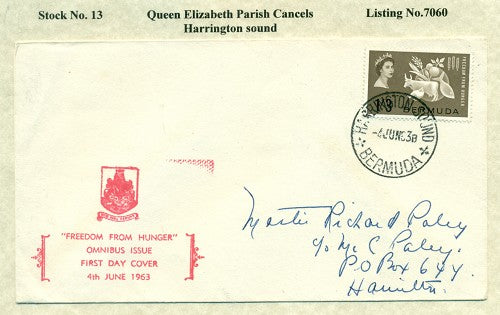 Stock No. 13 Queen Elizabeth Parish Cancels Listing No.7060
Harrington sound
FREEDOM FROM HUNGER
1/3 BERMUDA
HARRINGTON SOUND
-4 JUN 63
BERMUDA
"FREEDOM FROM HUNGER"
OMNIBUS ISSUE
FIRST DAY COVER
4th JUNE 1963
Master Richard Paley
c/o Mr C Paley.
P.O Box 644.
Hamilton.